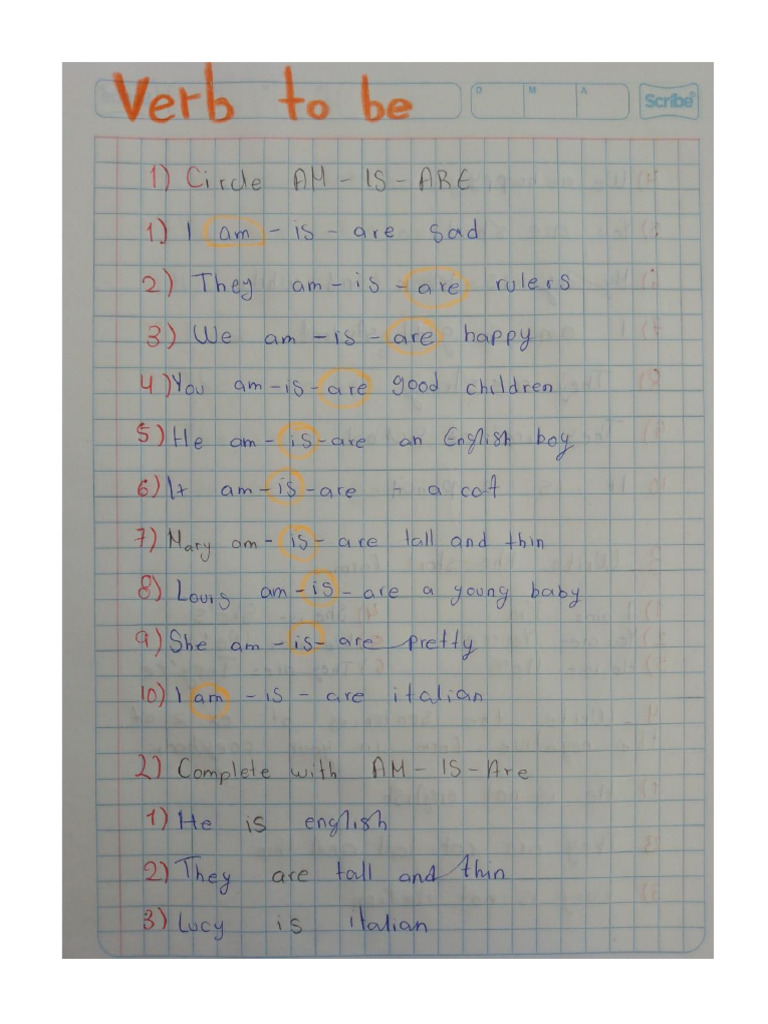 Verb to be
D M A
Scribe®
1) Circle AM - IS - ARE
1) I am - is - are sad
2) They am - is - are rulers
3) We am - is - are happy
4) You am - is - are good children
5) He am - is - are an English boy
6) It am - is - are a cat
7) Mary am - is - are tall and thin
8) Louis am - is - are a young baby
9) She am - is - are pretty
10) I am - is - are italian
2) Complete with AM - IS - Are
1) He is english
2) They are tall and thin
3) Lucy is italian